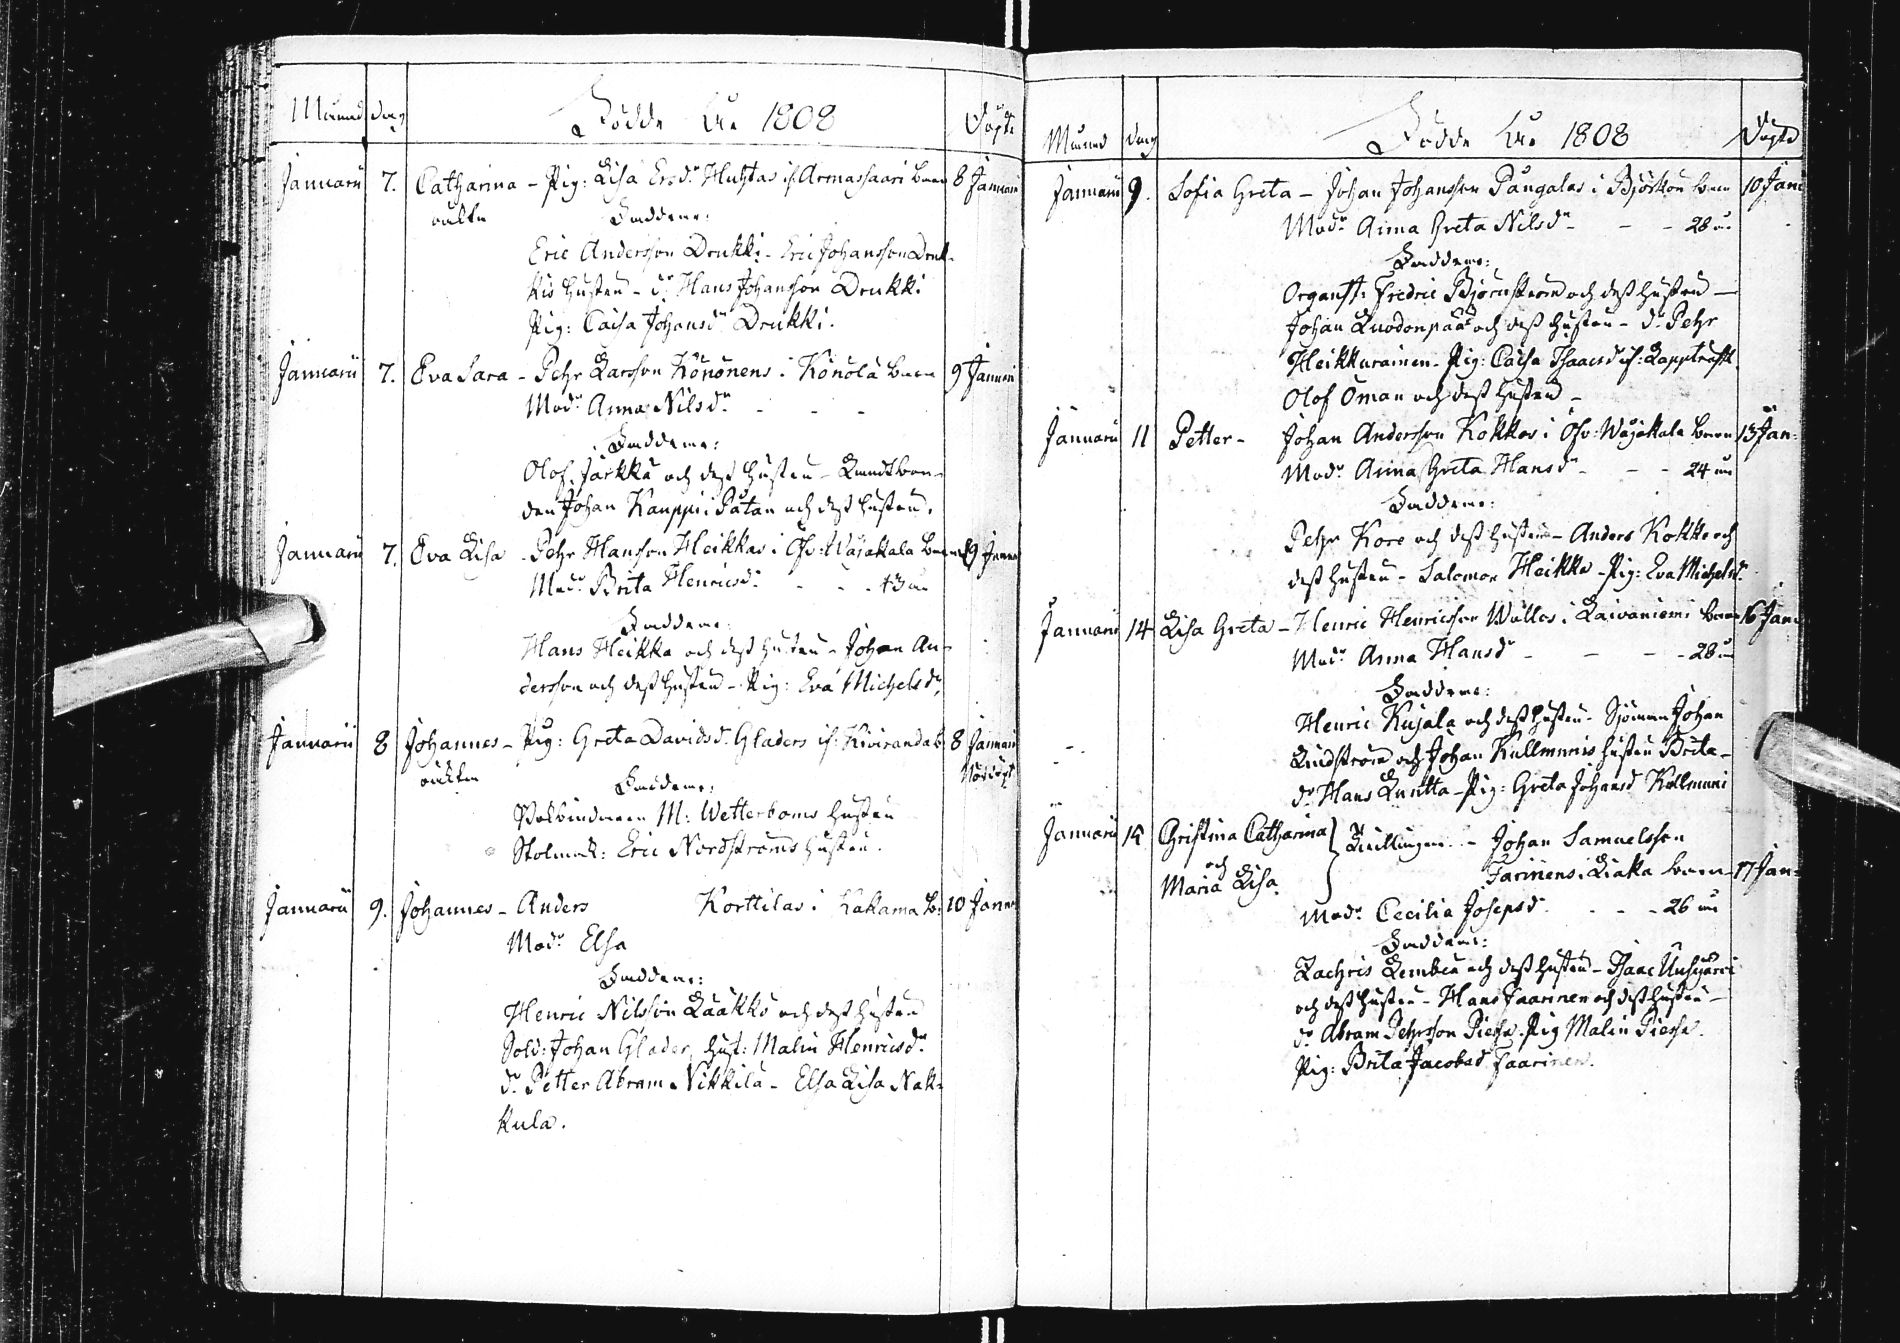 Månad dag Födde år 1808 Döpte
Januarii 7. Catharina - Pig: Lisa Ersdr Huhtas if: Armassaari barn 8 Januarii
oäkta Faddrar:
Eric Andersson Drukki - Eric Johansson Druk-
kis hustru - dr Hans Johansson Drukki
Pig: Caisa Johansdr Drukki.
Januarii 7. Eva Sara - Pehr Larsson Könönens i Könölä barn 9 Januarii
Modr Anna Nilsdr - - -
Faddrar:
Olof Jarkkä och dess hustru - Landtbon-
den Johan Kauppi i Pätan och dess hustru.
Januarii 7. Eva Lisa - Pehr Hansson Heikkas i Öfv: Wojakala barn 9 Januarii
Modr Brita Henricsdr - - - 43 år
Faddrar:
Hans Heikka och dess hustru - Johan An-
dersson och dess hustru - Pig: Eva Michelsdr
Januarii 8 Johannes - Pig: Greta Davidsd. Gladers if: Kiviranda b: 8 Januarii
oäkta Faddrar: Nöddöpt
M: Wetterboms hustru
Stolmak: Eric Nordströms hustru.
Januarii 9. Johannes - Anders Korttilas i Kakama b: 10 Januarii
Modr Elsa
Faddrar:
Henric Nilsson Laakko och dess hustru
Sold: Johan Glader, hust: Malin Henricsdr
dr Petter Abram Nikkilä - Elsa Lisa Nak-
kula.
Månad dag Födde år 1808 Döpte
Januarii 9. Sofia Greta - Johan Johansson Pangalas i Björkön barn 10 Jan:
Modr Anna Greta Nilsdr - - - 28 år
Faddrar:
Organist: Fredric Björnström och dess hustru -
Johan Luodonpää och dess hustru - dr Pehr
Heikkurainen - Pig: Caisa Isaacsd if:
Olof Öman och dess hustru -
Januarii 11 Petter - Johan Andersson Kokkos i Öfv: Wojakala barn 13 Jan:
Modr Anna Greta Hansdr - - - 24 år
Faddrar:
Pehr Kore och dess hustru - Anders Kokko och
dess hustru - Salomon Heikka - Pig: Eva Michelsdr
Januarii 14 Lisa Greta - Henric Henricsson Wallos i Laivaniemi barn 16 Jan:
Modr Anna Hansdr - - - 28 år
Faddrar:
Henric Kujala och dess hustru - Sjöman Johan
Lindström och Johan Kullmunis hustru Brita -
dr Hans Luntta - Pig: Greta Johansd Kullmuni
Januarii 15 Christina Catharina } Twillingar - Johan Samuelsson
och
Maria Lisa. Farinens i Liakka barn - 17 Jan:
Modr Cecilia Josepsd. - - - 26 år
Faddrar:
Zachris Lembea och dess hustru - Isaac Unhjärvi
och dess hustru - Hans Faarinen och dess hustru -
dr Abram Pehrsson Pieska. Pig Malin Pieska.
Pig: Brita Jacobsd Faarinen.